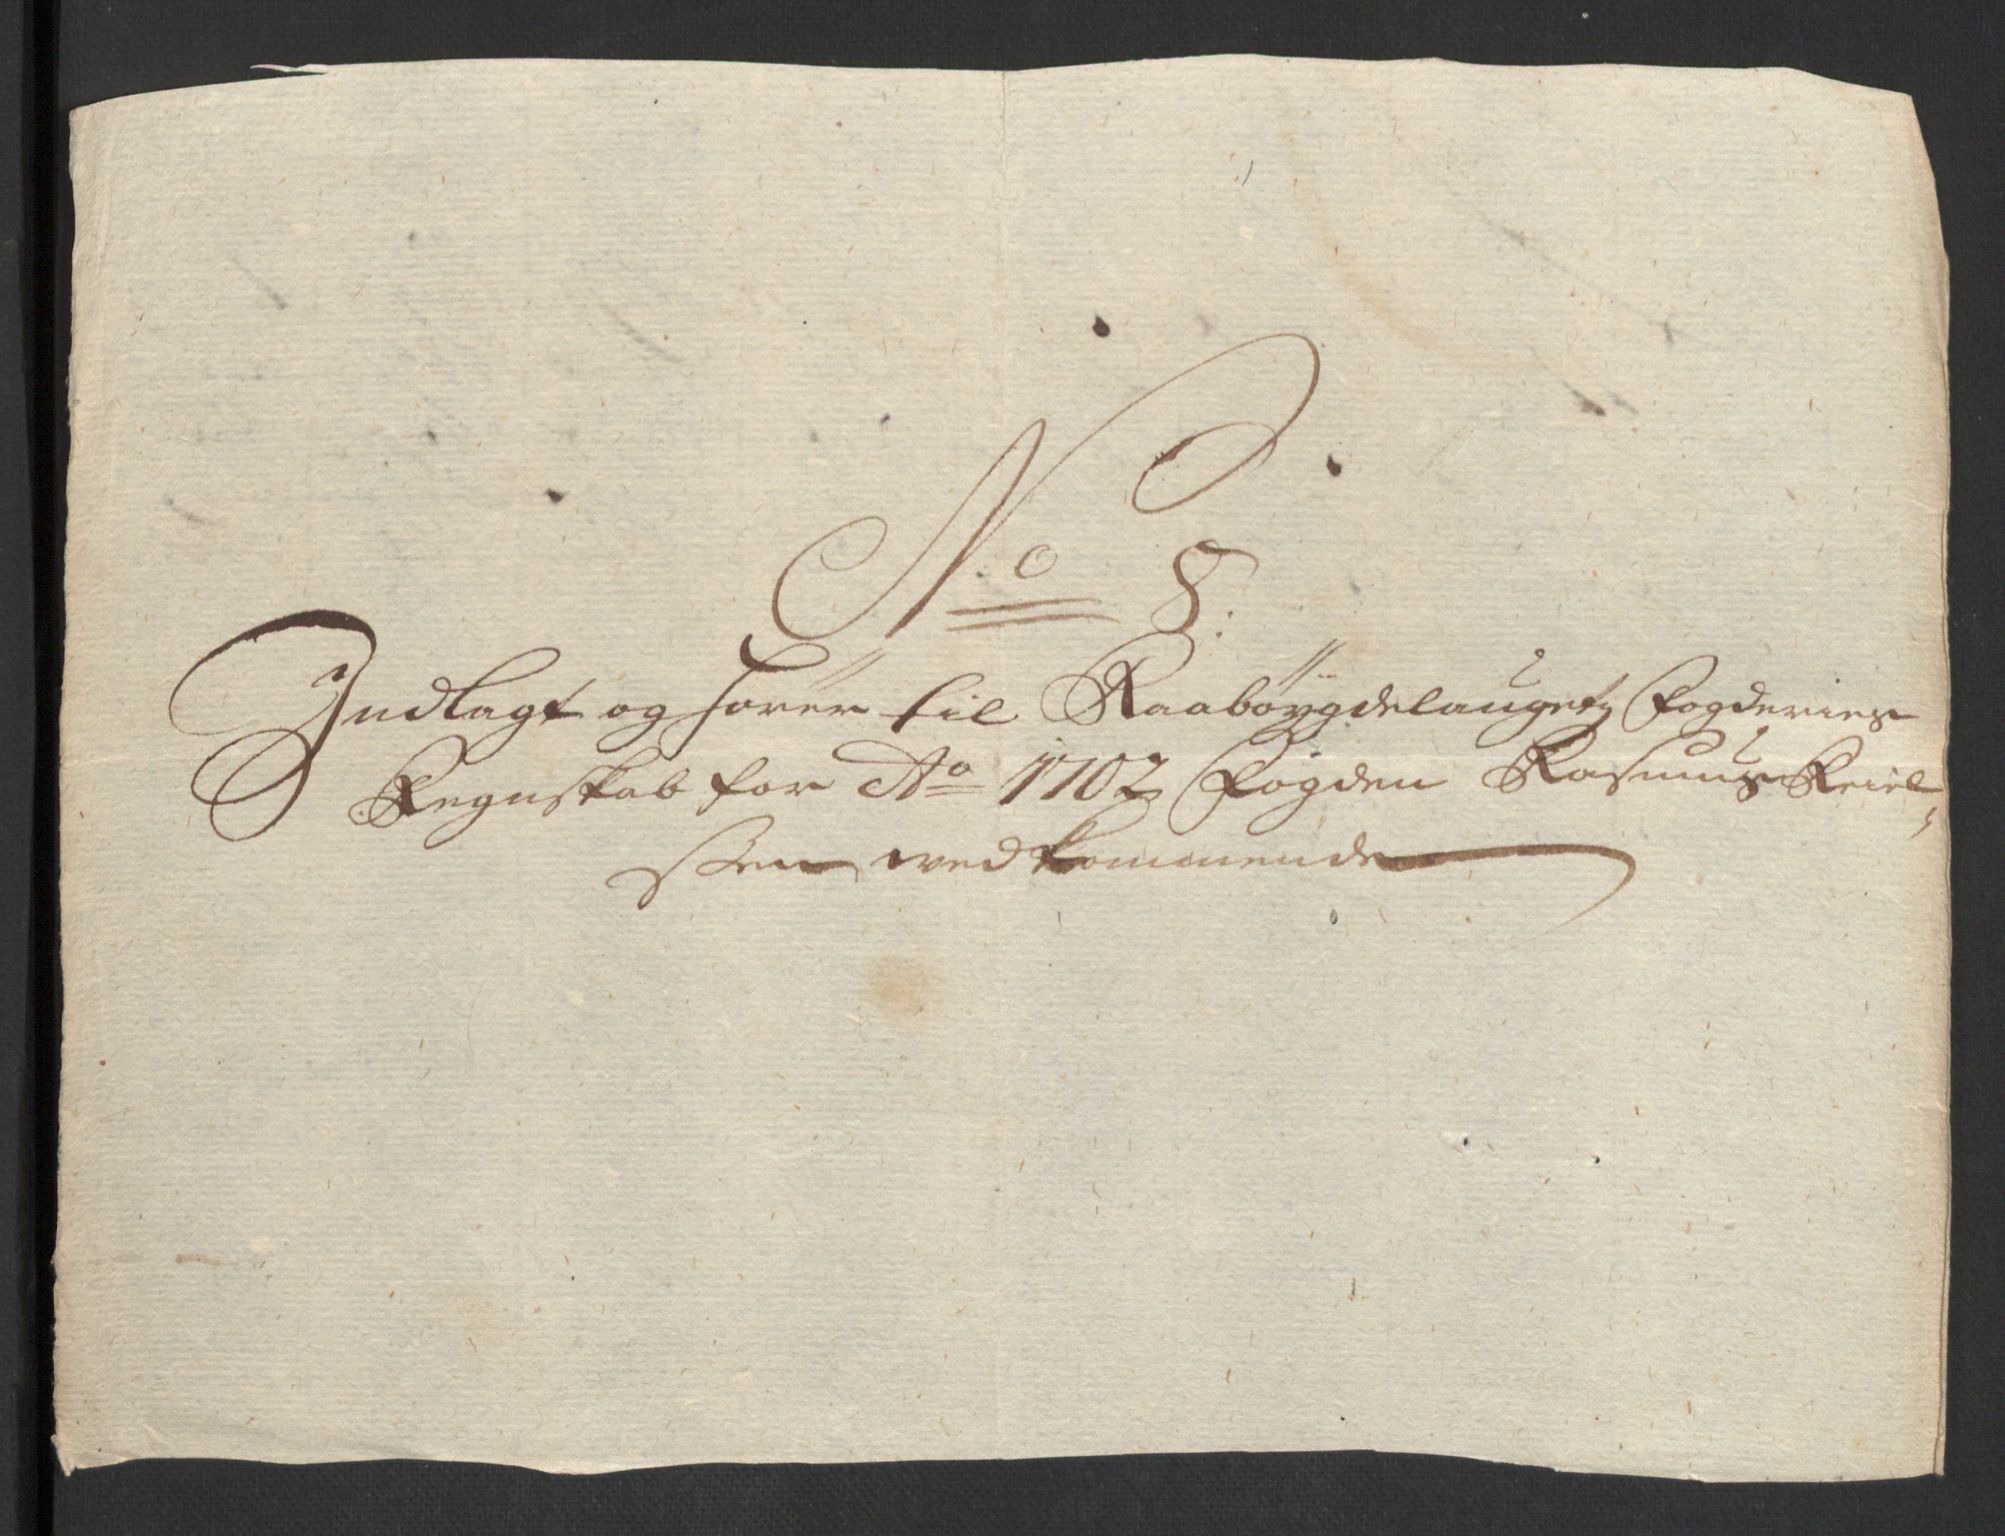 No 8:
Indlagt og hörer til Raaböygdelaugetz Fogderies
Regnskab for Ao 1702 Fogden Rasmus Keiel,
ssen wedkommende